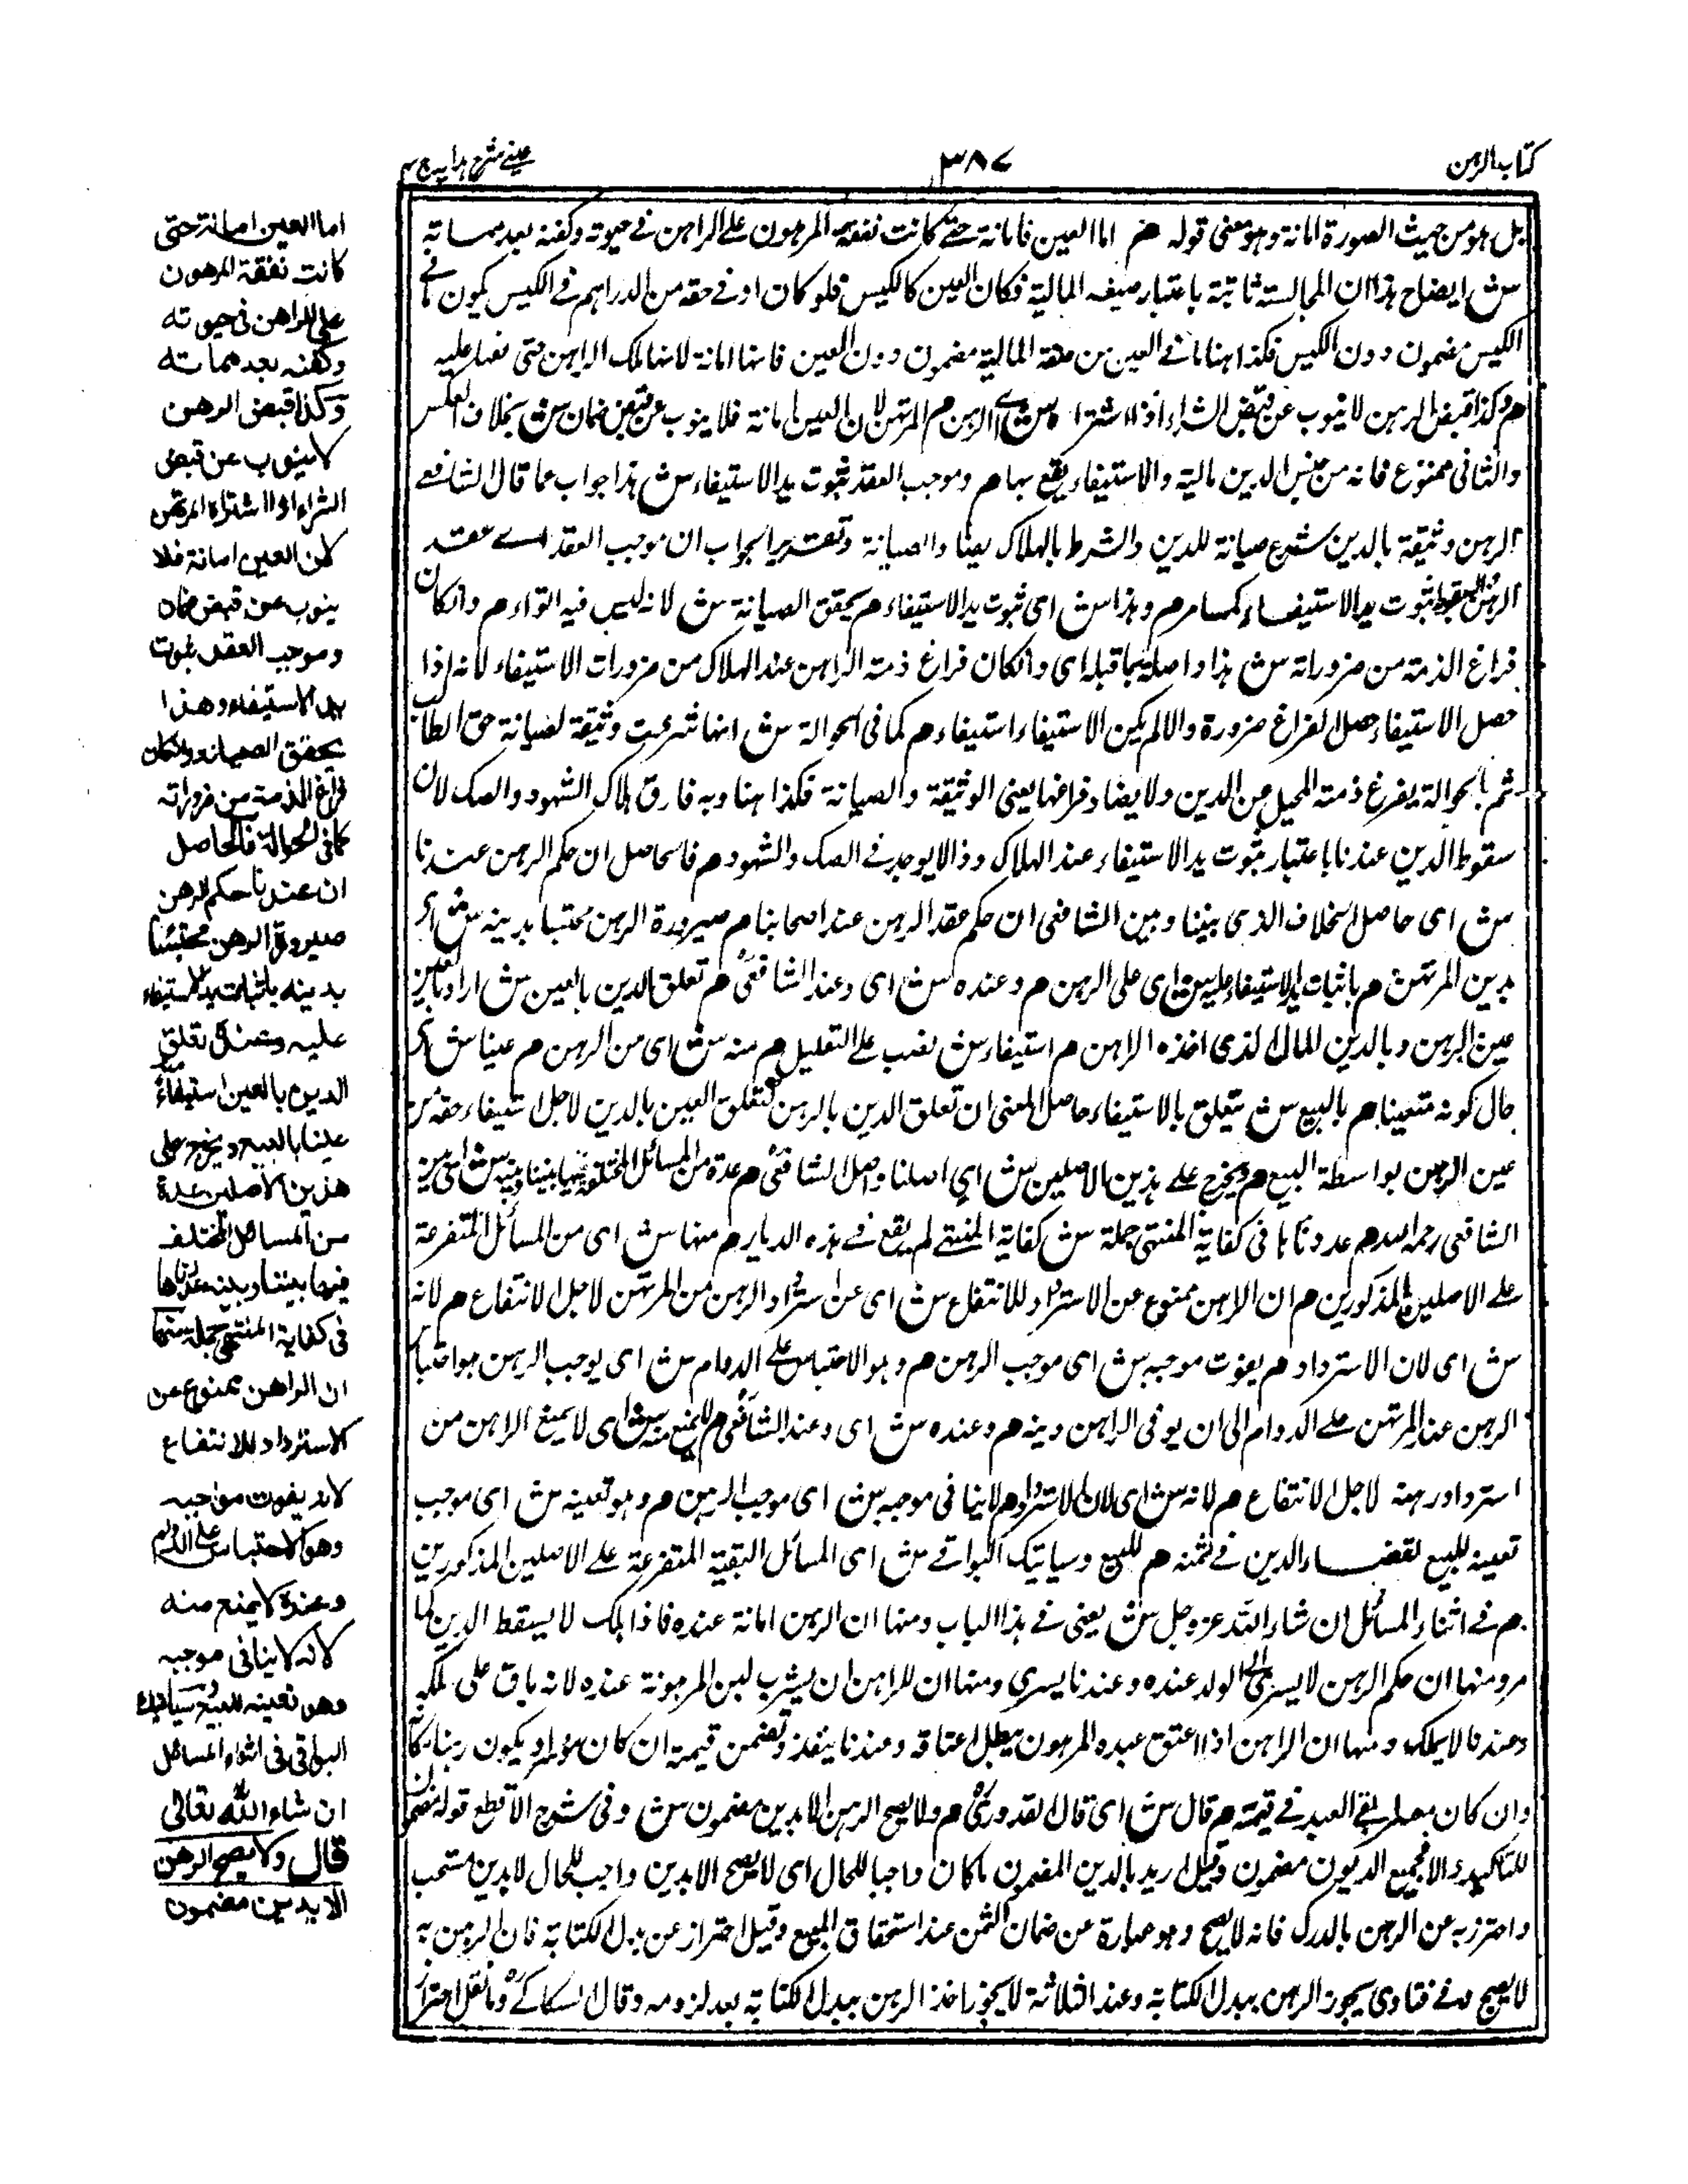 كتاب الرہن
٣٨٧
عينے شرح ہدايہ ج ٤
بل ہو من حيث الصورة امانة وہو معنی قولہ ھم اما العين فامانة حتے كانت نفقة المرہون علے الراہن فے حيوتہ وكفنہ بعد مماتہ
ش ايضاح ہذا ان المجالسة ثابتة باعتبار صفة المالية فكان العين كالكيس فلو كان اوفے حقہ من الدراہم فے الكيس يكون مافے
الكيس مضمون دون الكيس فكذا ہنا مافے العين من صفة المالية مضمون دون العين فانہا امانة لانہا ملك الراہن حتی نفقتہ عليہ
ھم وكذا قبض الرہن لا ينوب عن قبض الشراء اذا اشتراہ ش اے الرہن م المرتہن لان العين امانة فلا ينوب عن قبض ضمان ش بخلاف العكس
والثانی ممنوع فانہ من جنس الدين مالية والاستيفاء يقع بہا م وموجب العقد ثبوت يد الاستيفاء ش ہذا جواب عما قال الشافعے
الرہن وثيقة بالدين شرع صيانة للدين والشرط بالہلاك يضاد الصيانة وتقدير الجواب ان موجب العقد اے عقد
الرہن ثبوت يد الاستيفاء كما مر م وہذا ش ای ثبوت يد الاستيفاء م يحقق الصيانة ش لانہ ليس فيہ التواء م وان كان
فراغ الذمة من ضروراتہ ش ہذا واصلة بما قبلہ ای وان كان فراغ ذمة الراہن عند الہلاك من ضرورات الاستيفاء لانہ اذا
حصل الاستيفاء حصل الفراغ ضرورة والا لم يكن الاستيفاء استيفاء م كما فی الحوالة ش انہا شرعت وثيقة لصيانة حق الطالب
ثم بالحوالة يفرغ ذمة المحيل عن الدين ولا يضاد فراغہا يعنی الوثيقة والصيانة فكذا ہنا وبہ فارق ہلاك الشہود والصك لان
سقوط الدين عندنا باعتبار ثبوت يد الاستيفاء عند الہلاك وذا لا يوجد فے الصك والشہود م فالحاصل ان حكم الرہن عندنا
ش ای حاصل الخلاف الذی بيننا وبين الشافعی ان حكم عقد الرہن عند اصحابنا م صيرورة الرہن محتبسا بدينہ ش ای
بدين المرتہن م باثبات يد الاستيفاء عليہ ش ای علی الرہن م وعندہ ش ای وعند الشافعی م تعلق الدين بالعين ش اراد بالعين
عين الرہن وبالدين للمال الذی اخذہ الراہن م استيفاء ش نصب علے التعليل م منہ ش ای من الرہن م عينا ش ای
حال كونہ متعينا م بالبيع ش يتعلق بالاستيفاء حاصل المعنی ان تعلق الدين بالرہن كتعلق العين بالدين لاجل استيفاء حقہ من
عين الرہن بواسطة البيع م ويخرج علے ہذين الاصلين ش ای اصلنا واصل الشافعی م عدة من المسائل المختلفة فيہا بيننا وبينہ ش ای بين
الشافعی رحمہ اللہ م عددناہا فی كفاية المنتہی جملة ش كفاية المنتہے لم يقع فے ہذہ الديار م منہا ش ای من المسائل المتفرعة
علے الاصلين المذكورين م ان الراہن ممنوع عن الاسترداد للانتفاع ش ای عن استرداد الرہن من المرتہن لاجل الانتفاع م لانہ
ش ای لان الاسترداد م يفوت موجبہ ش ای موجب الرہن م وہو الاحتباس علے الدوام ش ای يوجب الرہن ہو احتباس
الرہن عند المرتہن علے الدوام الی ان يوفی الراہن دينہ م وعندہ ش ای وعند الشافعی م لا يمنع منہ ش ای لا يمنع الراہن من
استرداد رہنہ لاجل الانتفاع م لانہ ش ای لان الاسترداد م لا ينافی موجبہ ش ای موجب الرہن م وہو تعينہ ش ای موجب
تعينہ للبيع لقضاء الدين فے ثمنہ م للبيع وسياتيك البواقے ش ای المسائل البقية المتفرعة علے الاصلين المذكورين
م فے اثناء المسائل ان شاء اللہ عز وجل ش يعنی فے ہذا الباب ومنہا ان الرہن امانة عندہ فاذا ہلك لا يسقط الدين كما
مر ومنہا ان حكم الرہن لا يسری الی الولد عندہ وعندنا يسری ومنہا ان للراہن ان يشرب لبن المرہونة عندہ لانہ باق علی ملكہ
وعندنا لا يملك ومنہا ان الراہن اذا اعتق عبدہ المرہون يبطل اعتاقہ وعندنا ينفذ وتضمن قيمتہ ان كان موسرا ويكون رہنا مكانہ
وان كان معسرا يبقے العبد فے قيمتہ م قال ش ای قال القدوری م ولا يصح الرہن الا بدين مضمون ش وفی شرح الاقطع قولہ مضمون
للتاكيد والا فجميع الديون مضمون وقيل اريد بالدين المضمون ما كان واجبا للحال ای لا يصح الا بدين واجب للحال لا بدين مستحب
واحترز بہ عن الرہن بالدرك فانہ لا يصح وہو عبارة عن ضمان الثمن عند استحقاق المبيع وقيل احتراز عن بدل الكتابة فان الرہن بہ
لا يصح وفے فتاوی يجوز الرہن ببدل الكتابة وعند الثلاثة لا يجوز اخذ الرہن ببدل الكتابة بعد لزومہ وقال السكاكے وما نقل احتراز
اما العين امانة حتى
كانت نفقة المرهون
على الراهن في حيوته
وكفنه بعد مماته
وكذا قبض الرهن
لا ينوب عن قبض
الشراء اذا اشتراه المرتهن
لان العين امانة فلا
ينوب عن قبض ضمان
وموجب العقد ثبوت
يد الاستيفاء وهذا
يحقق الصيانة وان كان
فراغ الذمة من ضروراته
كما في الحوالة فالحاصل
ان عندنا حكم الرهن
صيرورة الرهن محتبسا
بدينه باثبات يد الاستيفاء
عليه وعنده تعلق
الدين بالعين استيفاء منه
عينا بالبيع ويخرج على
هذين الاصلين عدة
من المسائل المختلف
فيها بيننا وبينه عددناها
في كفاية المنتهى جملة منها
ان الراهن ممنوع عن
الاسترداد للانتفاع
لانه يفوت موجبه
وهو الاحتباس على الدوام
وعنده لا يمنع منه
لانه لا ينافي موجبه
وهو تعينه للبيع وسياتيك
البواقي في اثناء المسائل
ان شاء الله تعالى
قال ولا يصح الرهن
الا بدين مضمون